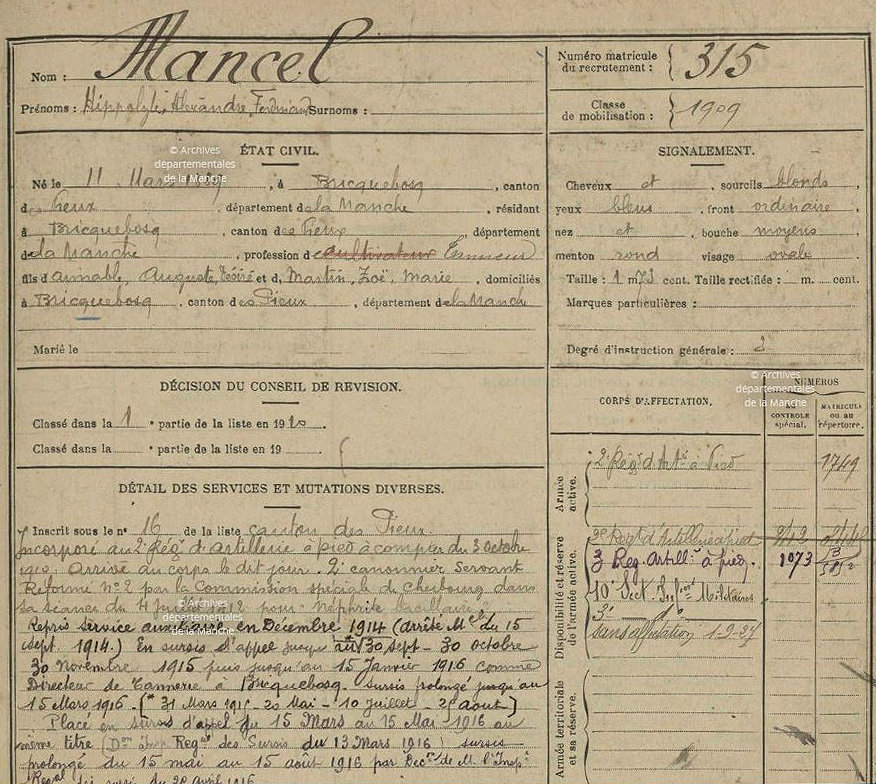 Nom : Mancel
Prénoms : Hippolyte, Alexandre, Fernand Surnoms :
Numéro matricule du recrutement : 315
Classe de mobilisation : 1909
© Archives départementales de la Manche
ÉTAT CIVIL.
Né le 11 Mars 1889, à Bricquebosq, canton
des Pieux, département de la Manche, résidant
à Bricquebosq, canton des Pieux, département
de la Manche, profession de cultivateur Tanneur
fils d'Aimable, Auguste, Désiré et de Martin, Zoë, Marie, domiciliés
à Bricquebosq, canton des Pieux, département de la Manche
Marié le
SIGNALEMENT.
Cheveux et, sourcils blonds,
yeux bleus, front ordinaire
nez et, bouche moyens
menton rond visage ovale
Taille : 1 m 73 cent. Taille rectifiée : m. cent.
Marques particulières :
Degré d'instruction générale : 3
DÉCISION DU CONSEIL DE REVISION.
Classé dans la 1e partie de la liste en 1910.
Classé dans la e partie de la liste en 19
© Archives départementales de la Manche
CORPS D'AFFECTATION.
NUMÉROS
AU CONTROLE spécial.
MATRICULE ou au répertoire.
Armée active.
2e Régt d'Artie à Pied 1749
Disponibilité et réserve de l'armée active.
3e Regt d'Artillerie à pied
3 Reg. Artillie à pied. 1073
10e Sect Militaires
sans affectation 1.9.27
Armée territoriale et sa réserve.
DÉTAIL DES SERVICES ET MUTATIONS DIVERSES.
Inscrit sous le n° 16 de la liste canton des Pieux.
Incorporé au 2e Régt d'artillerie à pied à compter du 3 octobre
1910. Arrivé au corps le dit jour. 2e canonnier servant
Réformé N° 2 par la Commission spéciale de Cherbourg dans
sa séance du 4 1912 pour "Néphrite bacillaire"
© Archives départementales de la Manche
Repris service auxiliaire en Décembre 1914 (arrêté Mel du 15
sept. 1914.) En sursis d'appel jusqu'au 30 sept - 30 octobre
30 novembre 1915 puis jusqu'au 15 Janvier 1916 comme
Directeur de Tannerie à Bricquebosq. sursis prolongé jusqu'au
15 Mars 1916. (31 Mars 1915 - 20 Mai - 10 juillet - 25 août)
Placé en sursis d'appel du 15 Mars au 15 Mai 1916 au
même titre (Don Insp Regal des Sursis du 13 Mars 1916) sursis
prolongé du 15 mai au 15 août 1916 par Decon de M. l'Inspr
Regal des sursis du 20 Avril 1916